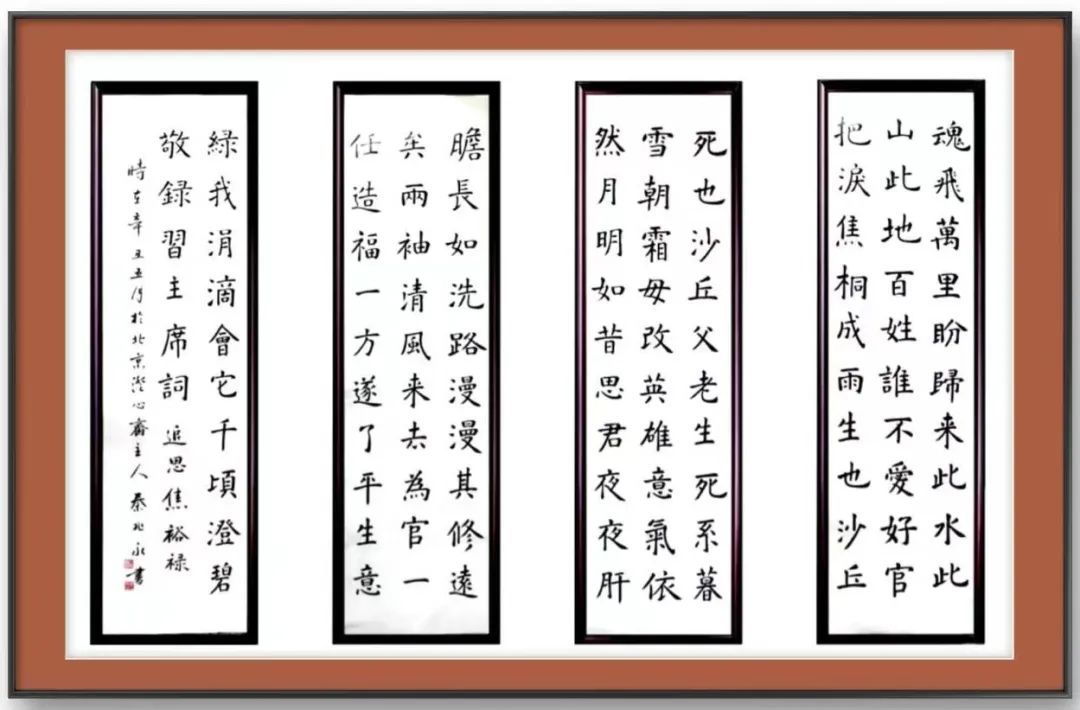 魂飛萬里盼歸来此水此
山此地百姓誰不愛好官
把淚焦桐成雨生也沙丘
死也沙丘父老生死系暮
雪朝霜毋改英雄意氣依
然月明如昔思君夜夜肝
膽長如洗路漫漫其修遠
矣兩袖清風来去為官一
任造福一方遂了平生意
綠我涓滴會它千頃澄碧
敬録習主席詞 追思焦裕禄
時在辛丑五月於北京澄心齋主人秦永書